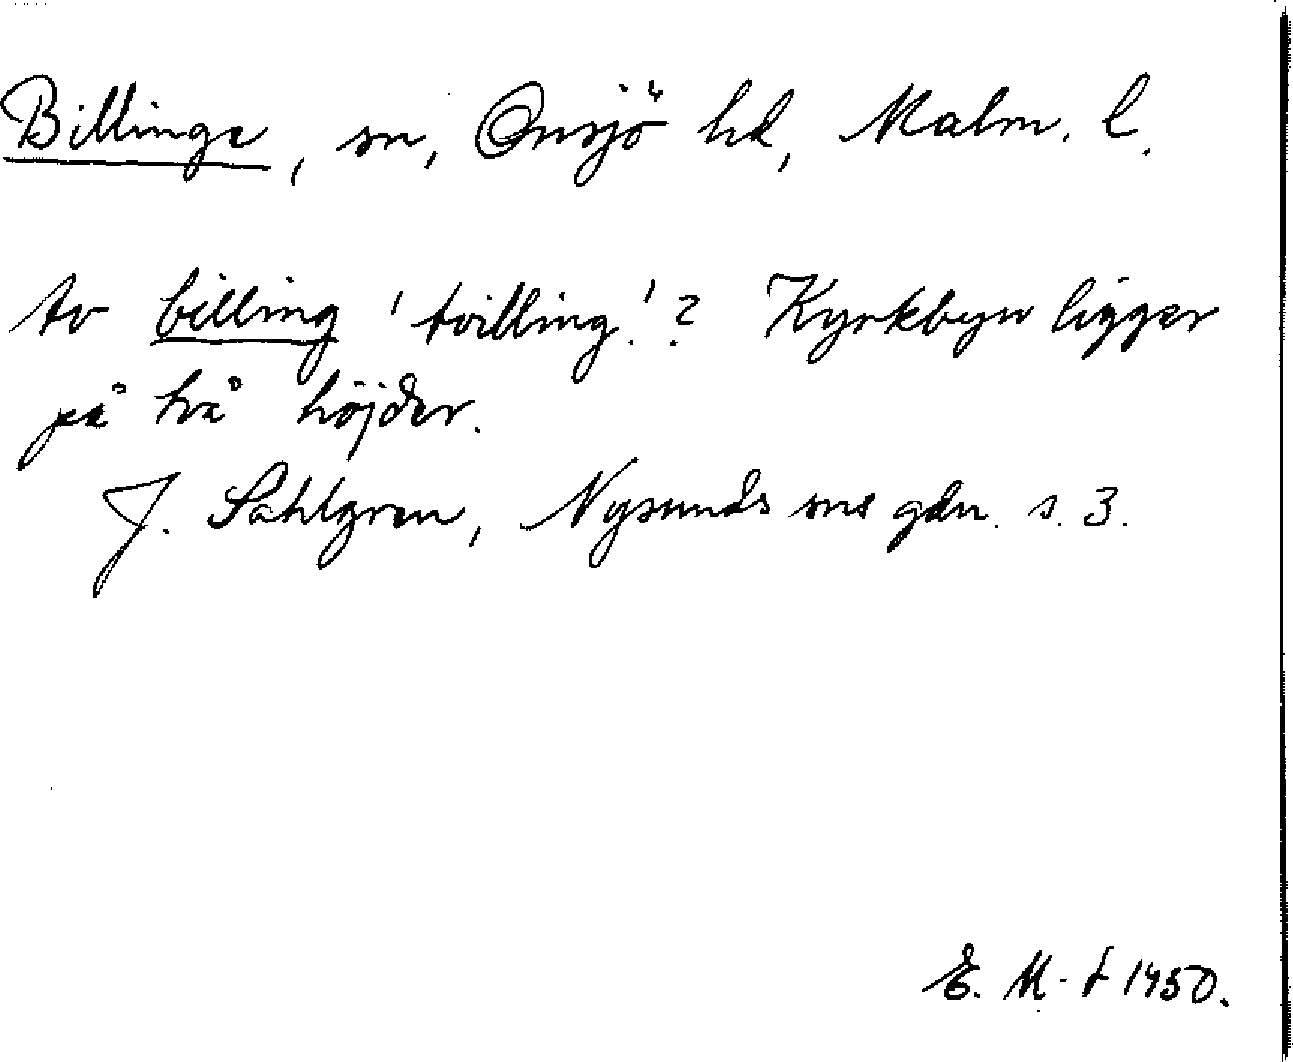 Billinge, sn, Onsjö hd, Malm. l.
Av billing 'tvilling'? Kyrkbyn ligger
på två höjder.
J. Sahlgren, Nysunds sns gdn. s. 3.
E. M-t 1950.